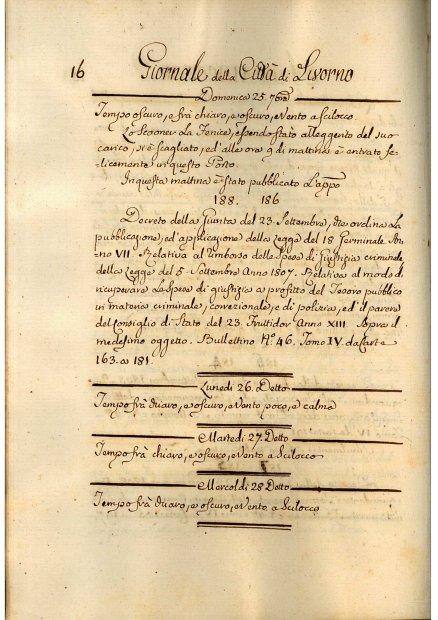 16
Giornale della Città di Livorno
Domenica 25. 7bre
Tempo oscuro, e frà chiaro, e oscuro, e Vento a Scilocco
Lo Scooner La Fenice, essendo stato alleggerito del suo
carico, si è scagliato, ed'alle ore 9 di mattina è entrato fe-
licemente in questo Porto.
In questa mattina è stato pubblicato L'appo
188. 186
Decreto della Giunta del 23 Settembre, che ordina La
pubblicazione, ed'applicazione della Legge del 18 Germinale An-
no VII Relativa al rimborso delle Spese di Giustizia criminale
della Legge del 5 Settembre Anno 1807. Relativa al modo di
ricuperare Le Spese di giustizia a profitto del Tesoro pubblico
in materia criminale, correzionale, e di polizia, ed'il parere
del Consiglio di Stato del 23. Fruttidor Anno XIII Sopra il
medesimo oggetto. Bullettino No. 46. Tomo IV. da Carte
163. a 181.
Lunedi 26. Detto
Tempo frà chiaro, e oscuro, e Vento poco, e calma
Martedi 27. Detto
Tempo frà chiaro, e oscuro, e Vento a Scilocco
Mercoldi 28 Detto
Tempo frà chiaro, e oscuro, e Vento a Scilocco